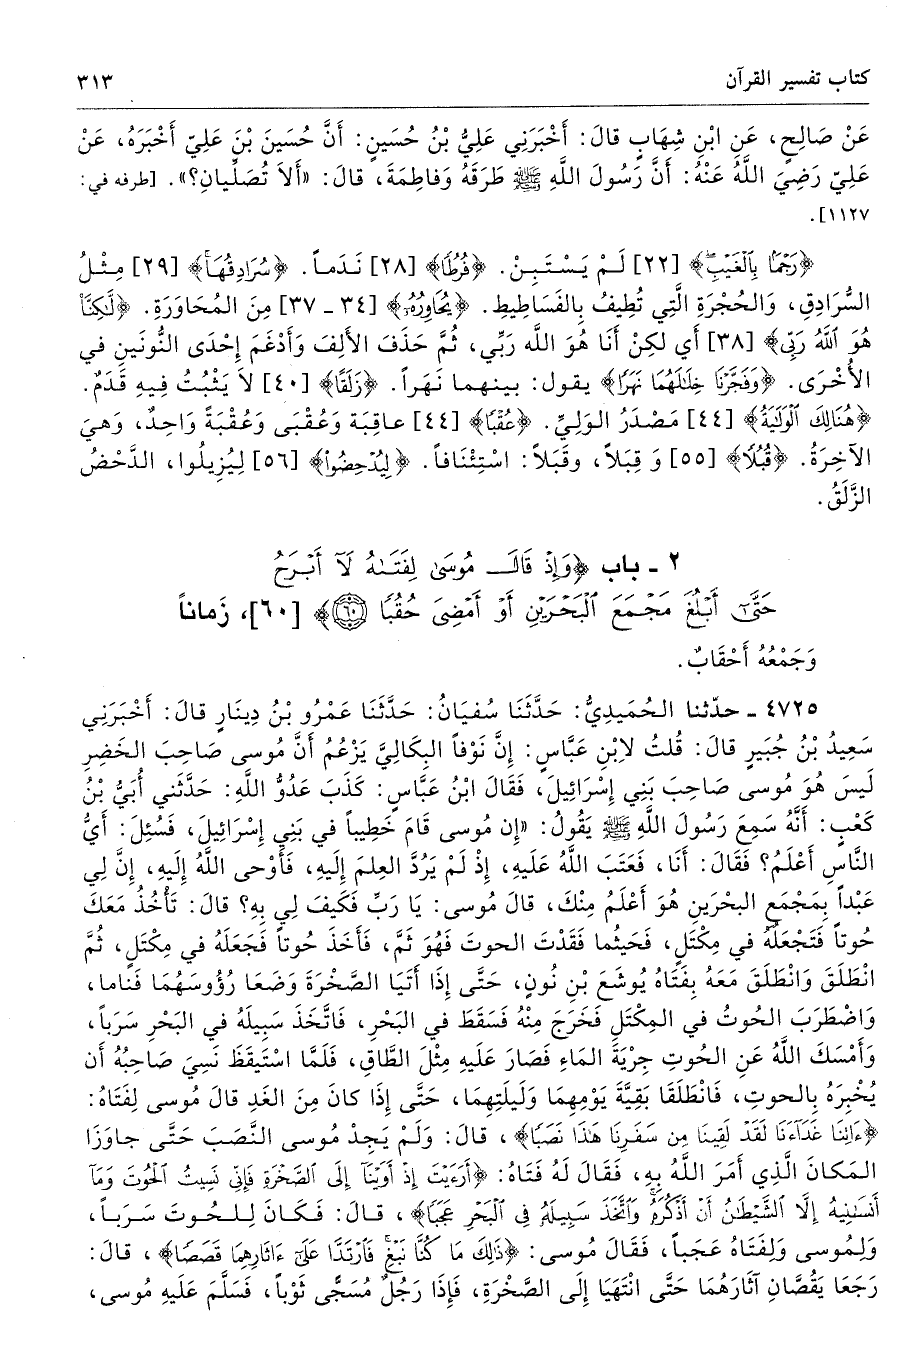 كتاب تفسير القرآن ٣١٣
عَنْ صَالِحٍ، عَنِ ابْنِ شِهَابٍ قالَ: أَخْبَرَنِي عَلِيُّ بْنُ حُسَيْنٍ: أَنَّ حُسَيْنَ بْنَ عَلِيٍّ أَخْبَرَهُ، عَنْ
عَلِيٍّ رَضِيَ اللَّهُ عَنْهُ: أَنَّ رَسُولَ اللَّهِ ﷺ طَرَقَهُ وَفاطِمَةَ، قالَ: «أَلاَ تُصَلِّيانِ؟». [طرفه في:
١١٢٧].
﴿رَجْمًا بِالْغَيْبِ﴾ [٢٢] لَمْ يَسْتَبِنْ. ﴿فُرُطًا﴾ [٢٨] نَدَماً. ﴿سُرَادِقُهَا﴾ [٢٩] مِثْلُ
السُّرَادِقِ، وَالحُجْرَةِ الَّتِي تُطِيفُ بِالفَسَاطِيطِ. ﴿يُحَاوِرُهُ﴾ [٣٤ ـ ٣٧] مِنَ المُحَاوَرَةِ. ﴿لَّكِنَّا
هُوَ ٱللَّهُ رَبِّي﴾ [٣٨] أي لكِنْ أَنَا هُوَ الله رَبِّي، ثُمَّ حَذَفَ الأَلِفَ وَأَدْغَمَ إِحْدَى النُّونَينِ في
الأُخْرَى. ﴿وَفَجَّرْنَا خِلَالَهُمَا نَهَرًا﴾ يقول: بينهما نَهَراً. ﴿زَلَقًا﴾ [٤٠] لاَ يَثْبُتُ فِيهِ قَدَمٌ.
﴿هُنَالِكَ ٱلْوَلَايَةُ﴾ [٤٤] مَصْدَرُ الوَلِيِّ. ﴿عُقْبًا﴾ [٤٤] عاقِبَة وَعُقْبَى وَعُقْبَةً وَاحِدٌ، وَهيَ
الآخِرَةُ. ﴿قُبُلًا﴾ [٥٥] وَ قِبَلاً، وقَبَلاً: اسْتِئْنَافاً. ﴿لِيُدْحِضُوا۟﴾ [٥٦] لِيُزِيلُوا، الدَّحْضُ
الزَّلَقُ.
٢ ـ باب ﴿وَإِذْ قَالَ مُوسَىٰ لِفَتَىٰهُ لَآ أَبْرَحُ
حَتَّىٰٓ أَبْلُغَ مَجْمَعَ ٱلْبَحْرَيْنِ أَوْ أَمْضِىَ حُقُبًا ٦٠﴾ [٦٠]، زَماناً
وَجَمْعُهُ أَحْقَابٌ.
٤٧٢٥ ـ حدّثنا الحُمَيدِيُّ: حَدَّثَنَا سُفيَانُ: حَدَّثَنَا عَمْرُو بْنُ دِينَارٍ قالَ: أَخْبَرَنِي
سَعِيدُ بْنُ جُبَيرٍ قالَ: قُلتُ لاِبْنِ عَبَّاسٍ: إِنَّ نَوْفاً البِكَالِيَّ يَزْعُمُ أَنَّ مُوسى صَاحِبَ الخَضِرِ
لَيسَ هُوَ مُوسى صَاحِبَ بَنِي إِسْرَائِيلَ، فَقَالَ ابْنُ عَبَّاسٍ: كَذَبَ عَدُوُّ اللَّهِ: حَدَّثَني أُبَيُّ بْنُ
كَعْبٍ: أَنَّهُ سَمِعَ رَسُولَ اللَّهِ ﷺ يَقُولُ: «إِن مُوسى قَامَ خَطِيباً في بَنِي إِسْرَائِيلَ، فَسُئِلَ: أَيُّ
النَّاسِ أَعْلَمُ؟ فَقَالَ: أَنَا، فَعَتَبَ اللَّهُ عَلَيهِ، إِذْ لَمْ يَرُدَّ العِلمَ إِلَيهِ، فَأَوْحى اللَّهُ إِلَيهِ، إِنَّ لِي
عَبْداً بِمَجْمَعِ البَحْرَينِ هُوَ أَعْلَمُ مِنْكَ، قالَ مُوسى: يَا رَبِّ فَكَيفَ لِي بِهِ؟ قالَ: تَأْخُذُ مَعَكَ
حُوتاً فَتَجْعَلُهُ في مِكْتَلٍ، فَحَيثُما فَقَدْتَ الحوتَ فَهُوَ ثَمَّ، فَأَخَذَ حُوتاً فَجَعَلَهُ في مِكْتَلٍ، ثُمَّ
انْطَلَقَ وَانْطَلَقَ مَعَهُ بِفَتَاهُ يُوشَعَ بْنِ نُونٍ، حَتَّى إِذَا أَتَيَا الصَّخْرَةَ وَضَعَا رُؤُوسَهُمَا فَناما،
وَاضْطَرَبَ الحُوتُ في المِكْتَلِ فَخَرَجَ مِنْهُ فَسَقَطَ في البَحْرِ، فَاتَّخَذَ سَبِيلَهُ في البَحْرِ سَرَباً،
وَأَمْسَكَ اللَّهُ عَنِ الحُوتِ جِرْيَةَ المَاءِ فَصَارَ عَلَيهِ مِثْلَ الطَّاقِ، فَلَمَّا اسْتَيقَظَ نَسِيَ صَاحِبُهُ أَن
يُخْبِرَهُ بِالحوتِ، فَانْطَلَقَا بَقِيَّةَ يَوْمِهِمَا وَلَيلَتِهِمَا، حَتَّى إِذَا كانَ مِنَ الغَدِ قالَ مُوسى لِفَتَاهُ:
﴿ءَاتِنَا غَدَآءَنَا لَقَدْ لَقِينَا مِن سَفَرِنَا هَٰذَا نَصَبًا﴾، قالَ: وَلَمْ يَجِدْ مُوسى النَّصَبَ حَتَّى جاوَزَا
المَكانَ الَّذِي أَمَرَ اللَّهُ بِهِ، فَقَالَ لَهُ فَتَاهُ: ﴿أَرَءَيْتَ إِذْ أَوَيْنَآ إِلَى ٱلصَّخْرَةِ فَإِنِّى نَسِيتُ ٱلْحُوتَ وَمَآ
أَنسَىٰنِيهُ إِلَّا ٱلشَّيْطَٰنُ أَنْ أَذْكُرَهُۥ وَٱتَّخَذَ سَبِيلَهُۥ فِى ٱلْبَحْرِ عَجَبًا﴾، قالَ: فَكَانَ لِلحُوتَ سَرَباً،
وَلِمُوسى وَلِفَتَاهُ عَجَباً، فَقَالَ مُوسى: ﴿ذَٰلِكَ مَا كُنَّا نَبْغِ فَٱرْتَدَّا عَلَىٰٓ ءَاثَارِهِمَا قَصَصًا﴾، قالَ:
رَجَعَا يَقُصَّانِ آثَارَهُمَا حَتَّى انْتَهَيَا إِلَى الصَّخْرَةِ، فَإِذَا رَجُلٌ مُسَجًّى ثَوْباً، فَسَلَّمَ عَلَيهِ مُوسى،